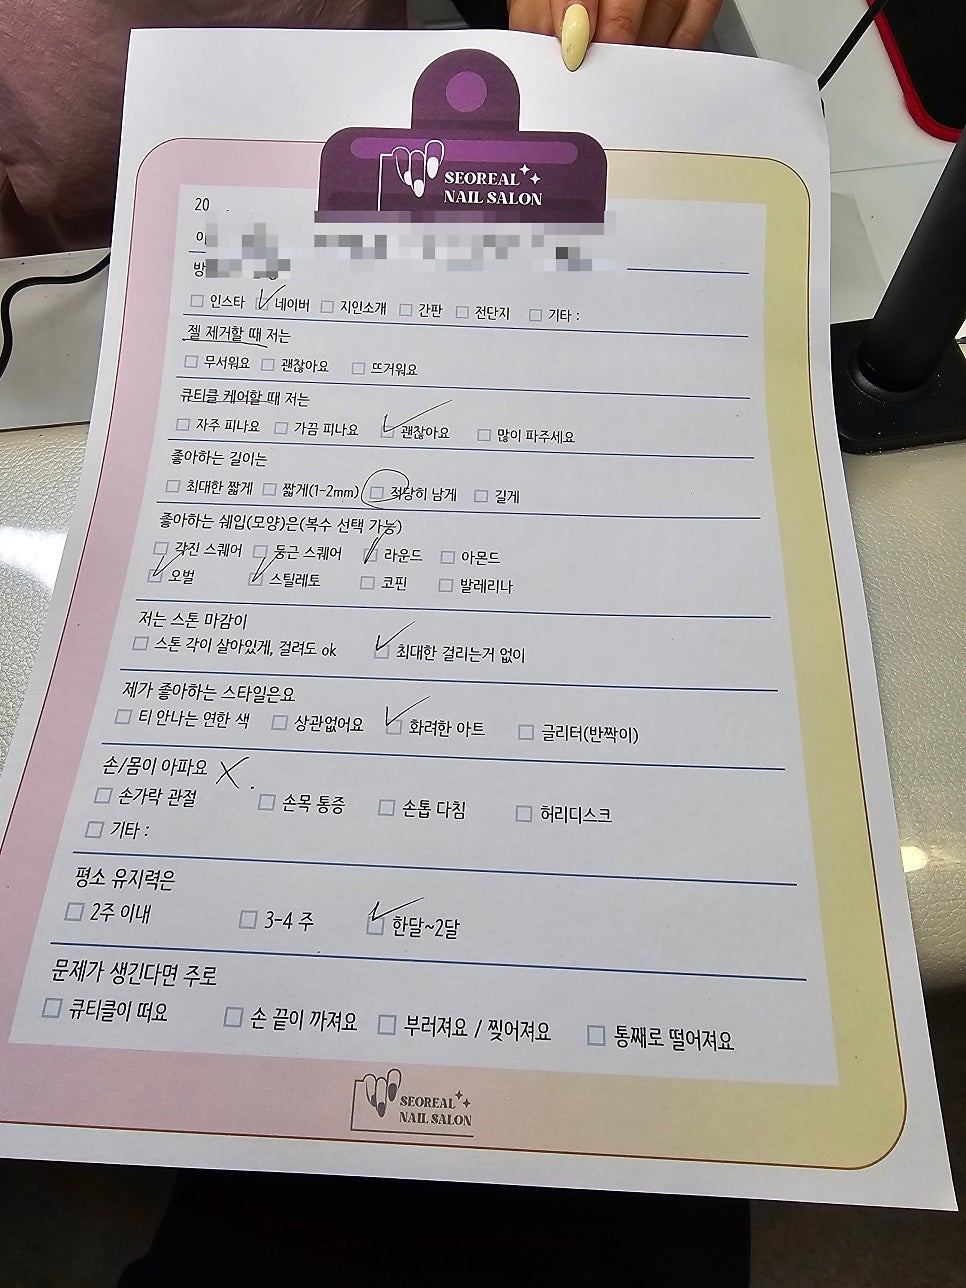 SEOREAL
NAIL SALON
20 .
이
방
인스타 네이버 지인소개 간판 전단지 기타 :
젤 제거할 때 저는
무서워요 괜찮아요 뜨거워요
큐티클 케어할 때 저는
자주 피나요 가끔 피나요 괜찮아요 많이 파주세요
좋아하는 길이는
최대한 짧게 짧게(1-2mm) 적당히 남게 길게
좋아하는 쉐입(모양)은(복수 선택 가능)
각진 스퀘어 둥근 스퀘어 라운드 아몬드
오벌 스틸레토 코핀 발레리나
저는 스톤 마감이
스톤 각이 살아있게, 걸려도 ok 최대한 걸리는거 없이
제가 좋아하는 스타일은요
티 안나는 연한 색 상관없어요 화려한 아트 글리터(반짝이)
손/몸이 아파요 X.
손가락 관절 손목 통증 손톱 다침 허리디스크
기타 :
평소 유지력은
2주 이내 3-4 주 한달~2달
문제가 생긴다면 주로
큐티클이 떠요 손 끝이 까져요 부러져요 / 찢어져요 통째로 떨어져요
SEOREAL
NAIL SALON